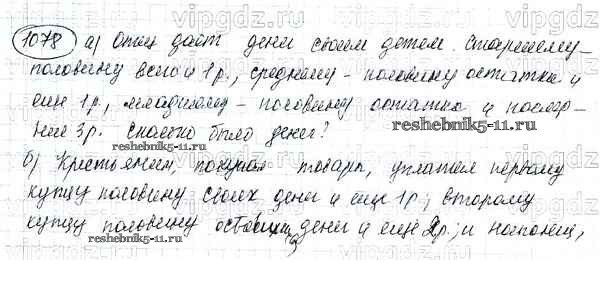 1078 а) Отец даёт ден. своим детям. Старшему-
половину всего и 1 р., среднему - половину остатка и
еще 1 р., младшему - половину остатка и послед-
ние 3 р. Сколько было денег?
reshebnik5-11.ru
б) Крестьянин, покупая товары, уплатил первому
купцу половину своих денег и еще 1 р.; второму
купцу половину оставших денег и еще 2 р.; и наконец,
reshebnik5-11.ru
vipgdz vipgdz vipgdz vipgdz